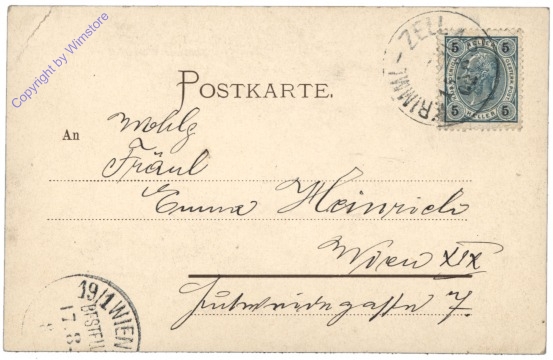 Copyright by Wimstore
KRIMML-ZELL
5 5
HELLER
5 5
POSTKARTE.
An
Wohlg
Fräul
Emma Heinrich
Wien XIX
7.
19/1 WIEN
BESTELLT
17.8.